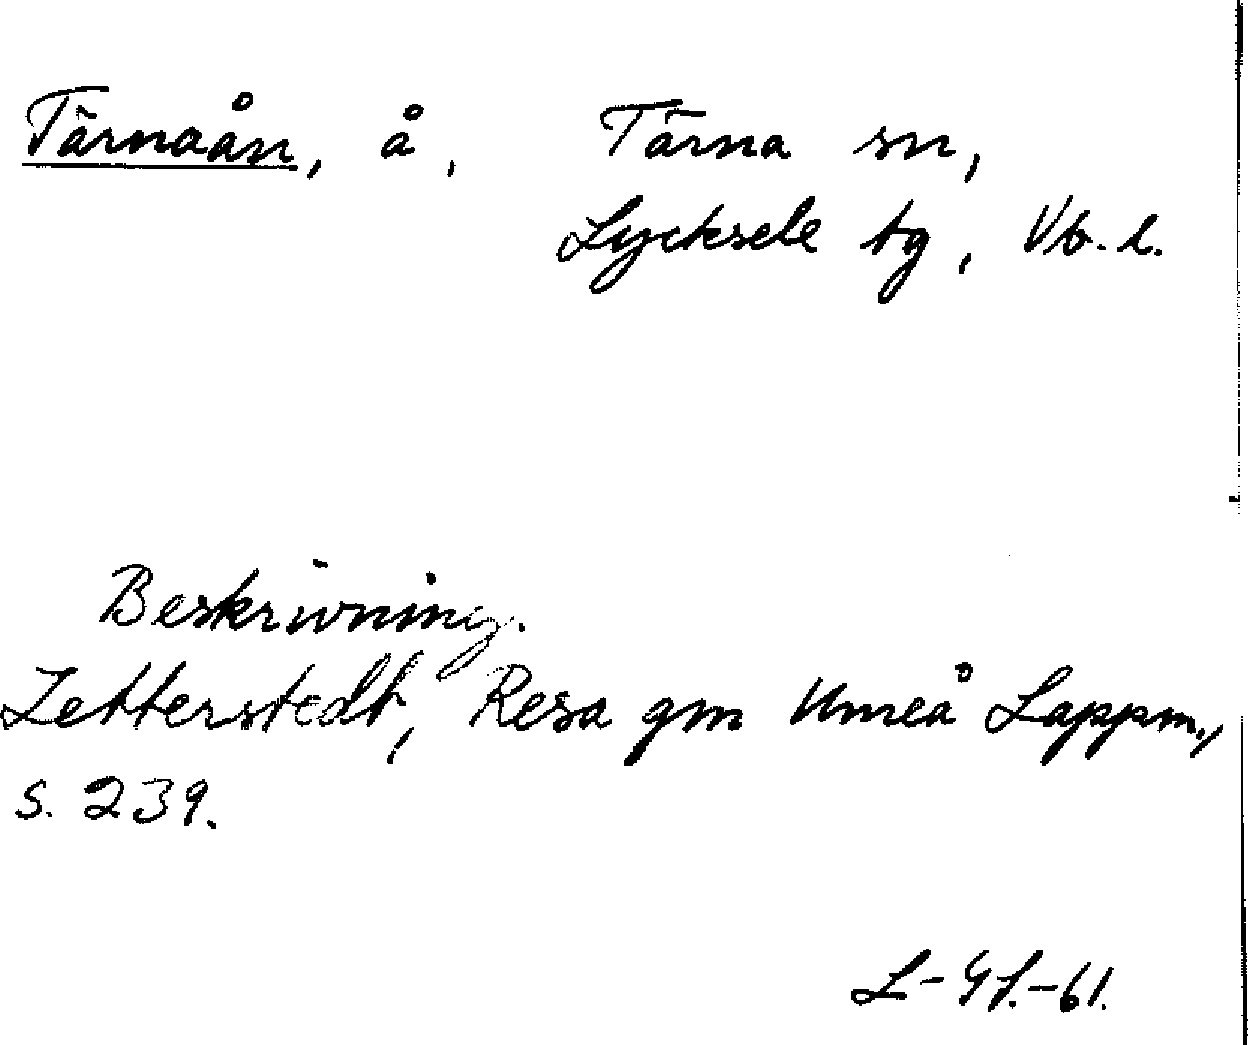 Tärnaån, å, Tärna sn,
Lycksele tg, Vb. l.
Beskrivning.
Zetterstedt, Resa gm Umeå Lappm.,
s. 239.